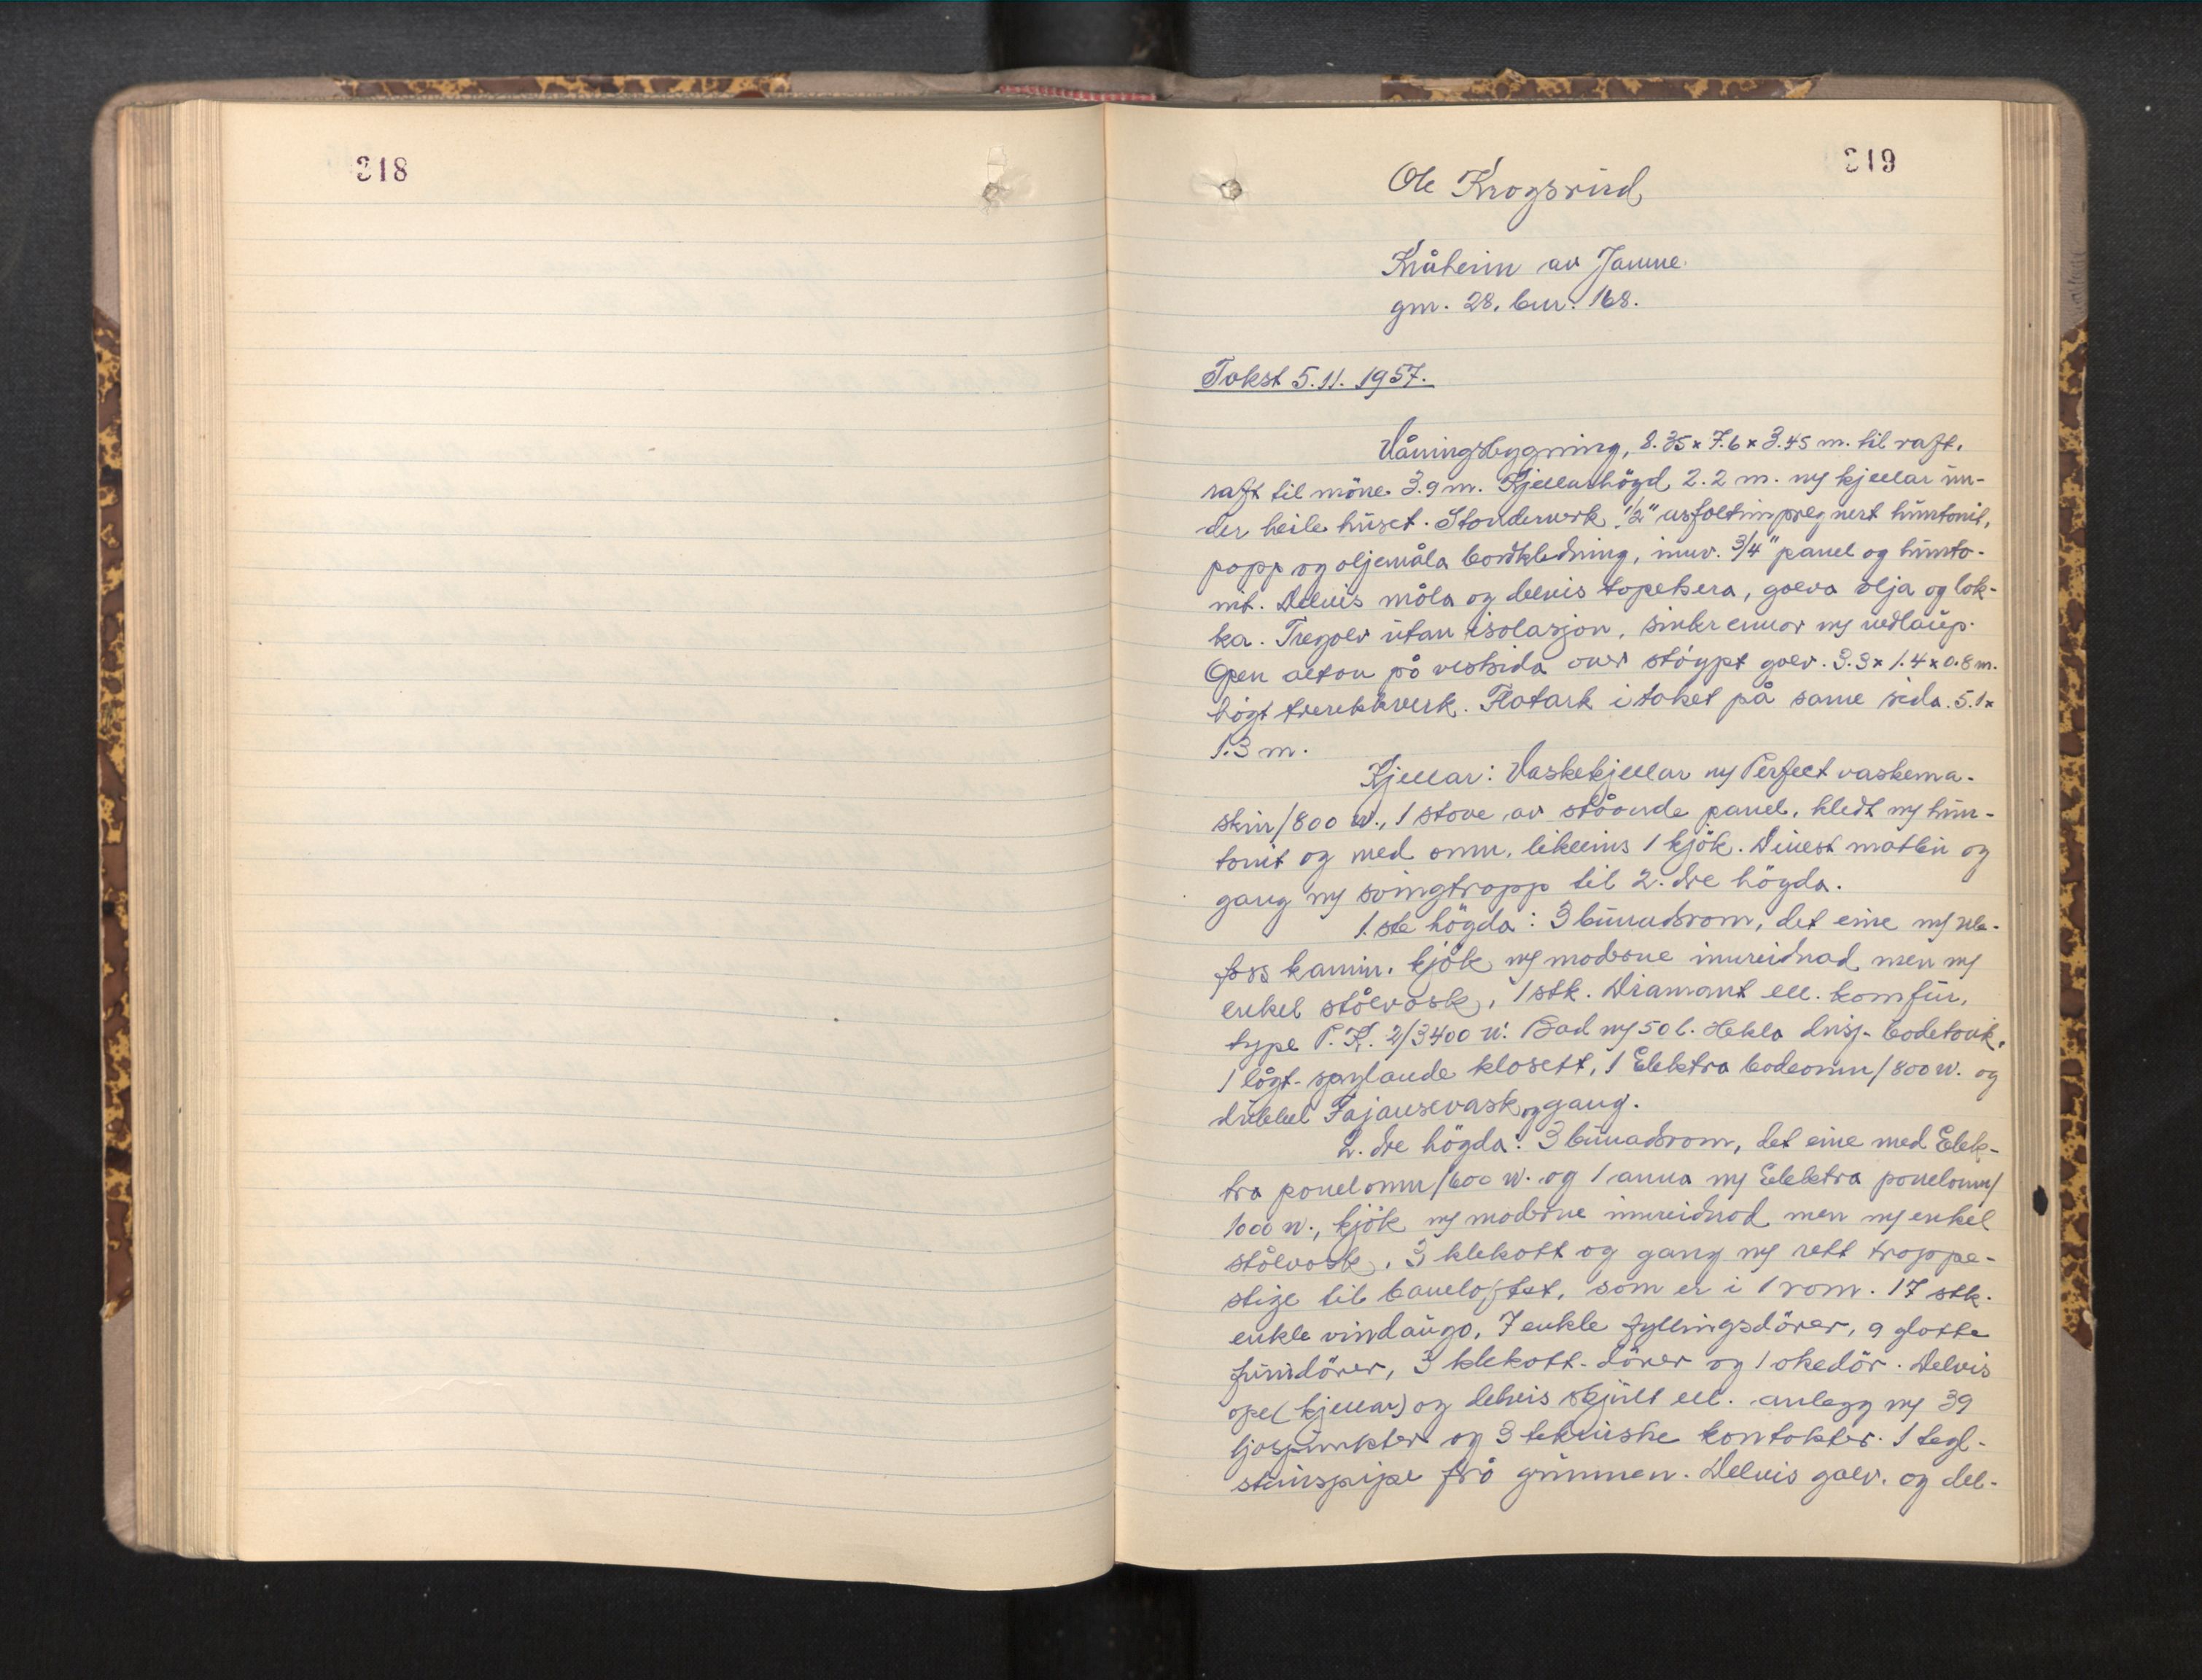 318
319
Ole Krogsrud
Kråheim av Jamne.
gnr. 28. bnr. 168.
Takst 5.11. 1957.
Våningsbygning, 8.35 x 7.6 x 3.45 m. til raft,
raft til möne 3.9 m. Kjellarhögd 2.2 m. m/ kjellar un-
der heile huset. Stenderverk, 1/2" asfaltimpregnert huntonit,
papp og oljemåla bordkledning, innv. 3/4" panel og hunto-
nit. Delvis måla og delvis tapetsera, golva olja og lak-
ka. Tregolv utan isolasjon, sinkrennor m/ nedlaup.
Open altan på vestsida over stöypt golv. 3.3 x 1.4 x 0.8 m.
högt trerekkverk. Flatark i taket på same sida. 5.1 x
1.3 m.
Kjellar: Vaskekjellar m/ Perfect vaskema-
skin/800 w., 1 stove av ståande panel, kledt m/ hun-
tonit og med omn, likeeins 1 kjök. Dinest matbu og
gang m/ svingtrapp til 2. dre högda.
1. ste högda: 3 bunadsrom, det eine m/ Ule-
foss kamin. kjök m/ moderne innreidnad men m/
enkel stålvask, 1 stk. Diamant ell. komfur,
type P.K. 2/3400 w. Bad m/ 50 l. Hekla dusj- badetank,
1 lågt-spylande klosett, 1 Elektra badeomn/800 w. og
dubbel Fajansevask og gang.
2. dre högda: 3 bunadsrom, det eine med Elek-
tra panelomn/600 w. og 1 anna m/ Elektra panelomn/
1000 w., kjök m/ moderne innreidnad men m/ enkel
stålvask, 3 klekott og gang m/ rett trappe-
stige til baneloftet, som er i 1 rom. 17 stk.
enkle vindaugo, 7 enkle fyllingsdörer, 9 glatte
finérdörer, 3 klekott-dörer og 1 okedör. Delvis
ope (kjellar) og delvis skjult ell. anlegg m/ 39
ljospunkter og 3 tekniske kontakter. 1 tegl-
steinspipe frå grunnen. Delvis galv. og del-